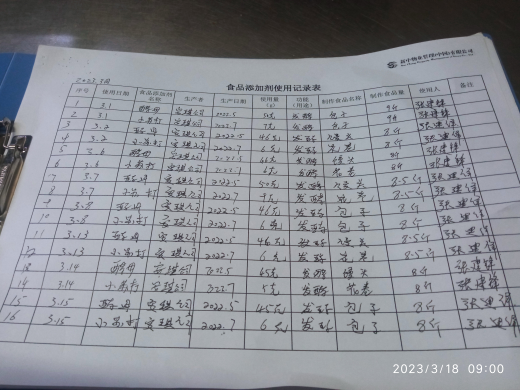 2023.3月
食品添加剂使用记录表
序号 使用日期 食品添加剂名称 生产者 生产日期 使用量(g) 功能(用途) 制作食品名称 制作食品量 使用人 备注
1 3.1 酵母 安琪公司 2022.5 发酵 包子 9斤 张建锋
2 3.1 小苏打 安琪公司 2022.7 发酵 包子 9斤 张建锋
3 3.2 酵母 安琪公司 2022.5 46克 发酵 馒头 8斤 张建锋
4 3.2 小苏打 安琪公司 2022.7 6克 发酵 花卷 8斤 张建锋
5 3.6 酵母 安琪公司 2022.5 发酵 馒头 8斤 张建锋
6 3.6 小苏打 安琪公司 2022.7 6克 发酵 花卷 8斤 张建锋
7 3.7 酵母 安琪公司 2022.5 50克 发酵 馒头 8.5斤 张建锋
8 3.7 小苏打 安琪公司 2022.7 7克 发酵 花卷 8.5斤 张建锋
9 3.8 酵母 安琪公司 2022.5 46克 发酵 包子 8斤 张建锋
10 3.8 小苏打 安琪公司 2022.7 6克 发酵 包子 8斤 张建锋
11 3.13 酵母 安琪公司 2022.5 46克 发酵 馒头 8.5斤 张建锋
12 3.13 小苏打 安琪公司 2022.7 6克 发酵 花卷 8.5斤 张建锋
13 3.14 酵母 安琪公司 2022.5 45克 发酵 馒头 8斤 张建锋
14 3.14 小苏打 安琪公司 2022.7 5克 发酵 花卷 8斤 张建锋
15 3.15 酵母 安琪公司 2022.5 45克 发酵 包子 8斤 张建锋
16 3.15 小苏打 安琪公司 2022.7 6克 发酵 包子 8斤 张建锋
2023/3/18 09:00